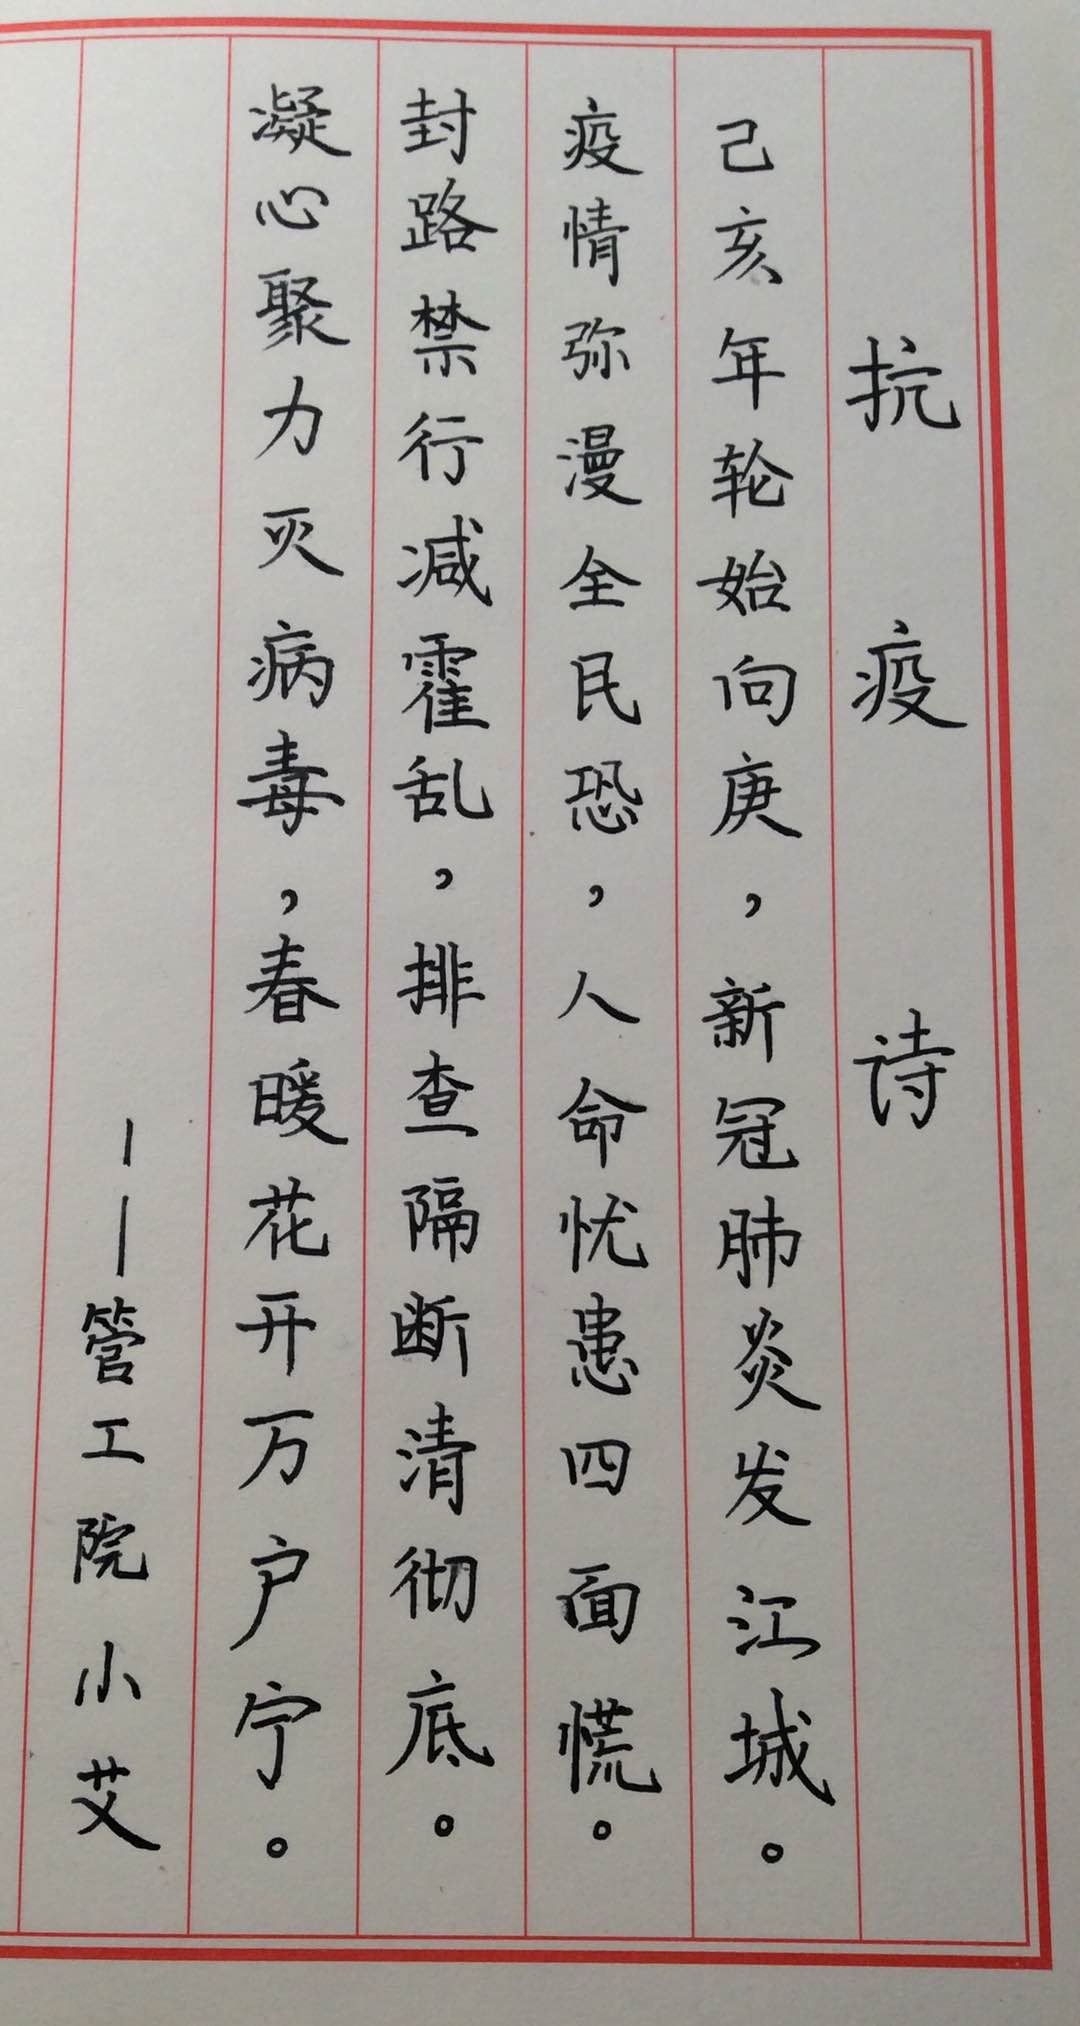 抗疫诗
己亥年轮始向庚，新冠肺炎发江城。
疫情弥漫全民恐，人命忧患四面慌。
封路禁行减霍乱，排查隔断清彻底。
凝心聚力灭病毒，春暖花开万户宁。
——管工院小艾